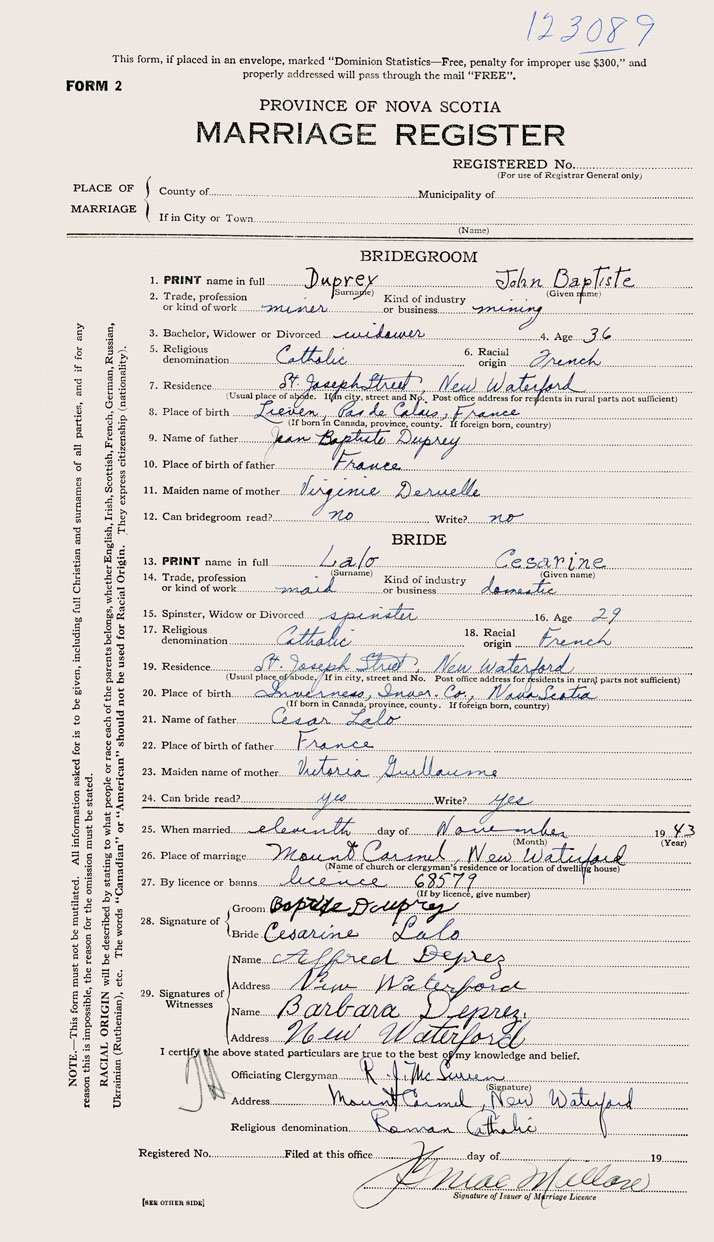 123089
This form, if placed in an envelope, marked "Dominion Statistics—Free, penalty for improper use $300," and
properly addressed will pass through the mail "FREE".
FORM 2
PROVINCE OF NOVA SCOTIA
MARRIAGE REGISTER
REGISTERED No.
(For use of Registrar General only)
PLACE OF MARRIAGE
County of Municipality of
If in City or Town
(Name)
BRIDEGROOM
1. PRINT name in full Duprey John Baptiste
(Surname) (Given name)
2. Trade, profession or kind of work miner Kind of industry or business mining
3. Bachelor, Widower or Divorced widower 4. Age 36
5. Religious denomination Catholic 6. Racial origin French
7. Residence St. Joseph Street, New Waterford
(Usual place of abode. If in city, street and No. Post office address for residents in rural parts not sufficient)
8. Place of birth Lieven, Pas de Calais, France
(If born in Canada, province, county. If foreign born, country)
9. Name of father Jean Baptiste Duprey
10. Place of birth of father France
11. Maiden name of mother Virginie Deruelle
12. Can bridegroom read? no Write? no
BRIDE
13. PRINT name in full Lalo Cesarine
(Surname) (Given name)
14. Trade, profession or kind of work maid Kind of industry or business domestic
15. Spinster, Widow or Divorced spinster 16. Age 29
17. Religious denomination Catholic 18. Racial origin French
19. Residence St. Joseph Street, New Waterford
(Usual place of abode. If in city, street and No. Post office address for residents in rural parts not sufficient)
20. Place of birth Inverness, Inver. Co., Nova Scotia
(If born in Canada, province, county. If foreign born, country)
21. Name of father Cesar Lalo
22. Place of birth of father France
23. Maiden name of mother Victoria Guillaume
24. Can bride read? yes Write? yes
25. When married eleventh day of November 1943
(Month) (Year)
26. Place of marriage Mount Carmel, New Waterford
(Name of church or clergyman's residence or location of dwelling house)
27. By licence or banns licence 68579
(If by licence, give number)
28. Signature of
Groom Baptiste Duprey
Bride Cesarine Lalo
29. Signatures of Witnesses
Name Alfred Deprez
Address New Waterford
Name Barbara Deprez
Address New Waterford
I certify the above stated particulars are true to the best of my knowledge and belief.
Officiating Clergyman R. J.
(Signature)
Address Mount Carmel, New Waterford
Religious denomination Roman Catholic
Registered No. Filed at this office day of 19
Signature of Issuer of Marriage Licence
[SEE OTHER SIDE]
NOTE.—This form must not be mutilated. All information asked for is to be given, including full Christian and surnames of all parties, and if for any
reason this is impossible, the reason for the omission must be stated.
RACIAL ORIGIN will be described by stating to what people or race each of the parents belongs, whether English, Irish, Scottish, French, German, Russian,
Ukrainian (Ruthenian), etc. The words "Canadian" or "American" should not be used for Racial Origin. They express citizenship (nationality).